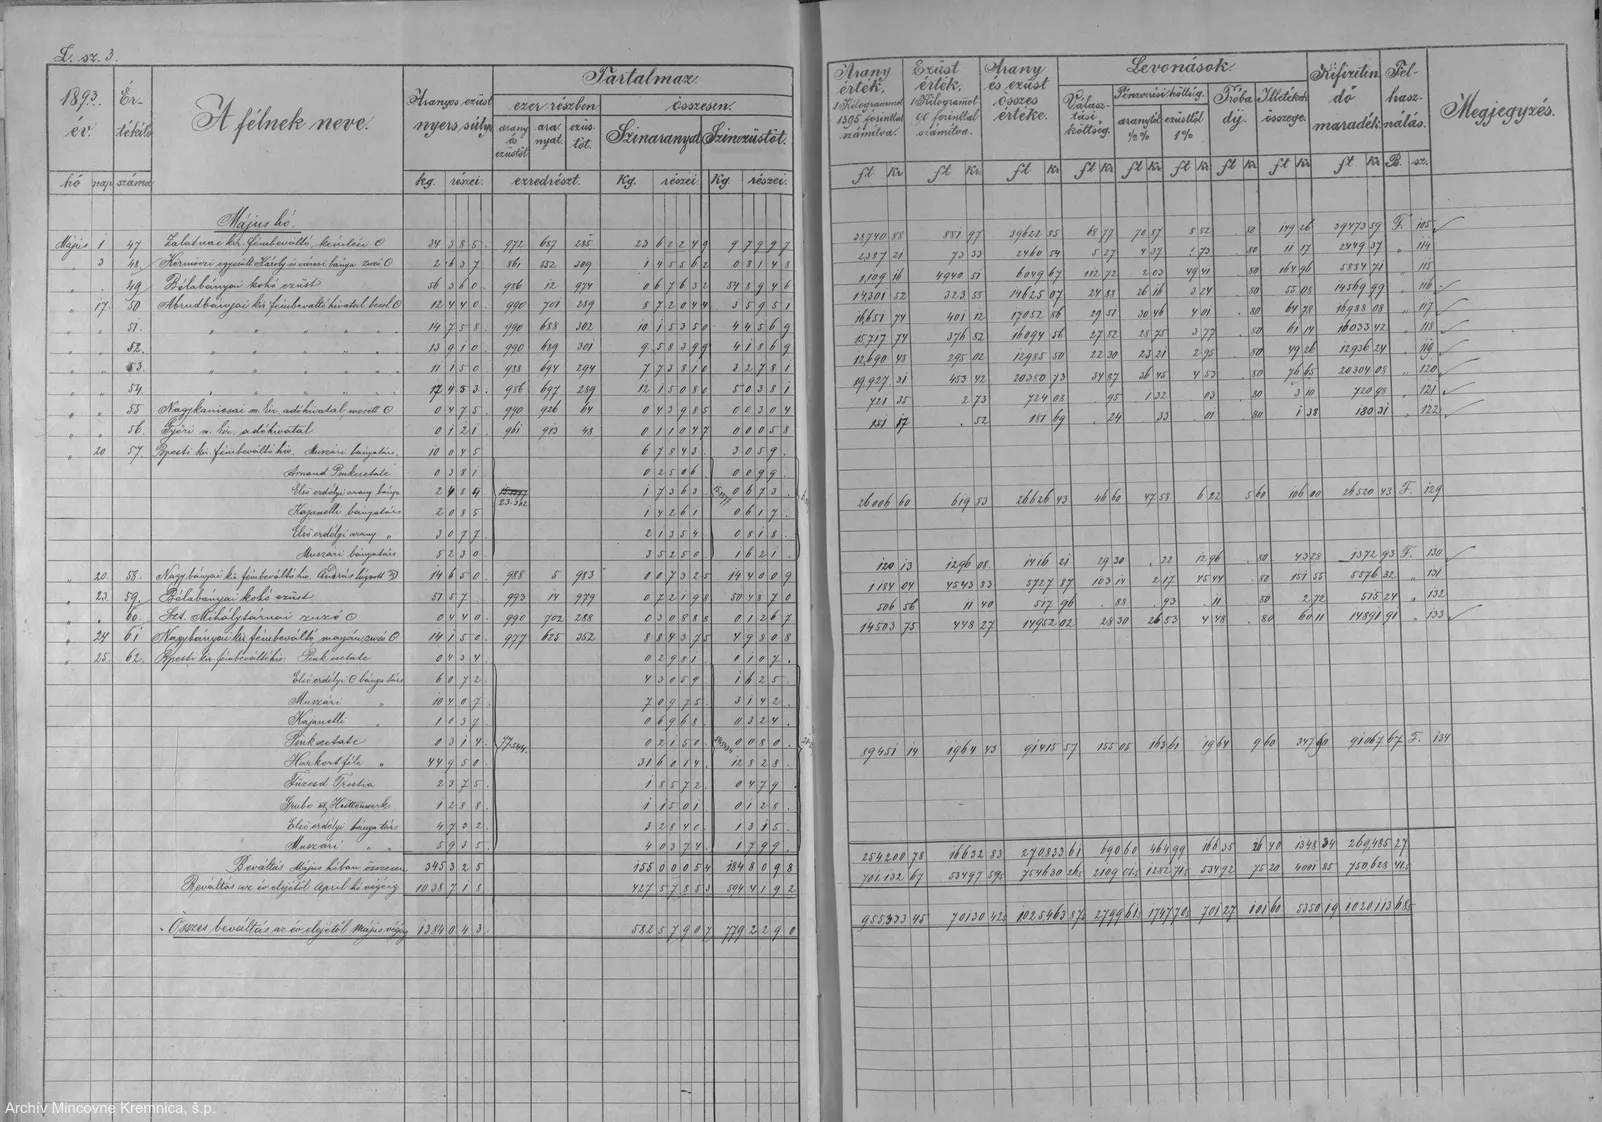 L. sz. 3.
1893. év.
Ér-tékítő száma
A félnek neve.
Aranyos ezüst nyers súlya
Tartalmaz
ezer részben
összesen.
arany és ezüstöt
ara-nyat.
ezüs-töt.
Színaranyat
Színezüstöt.
hó nap száma kg. részei. ezredrészt. Kg. részei Kg. részei.
Arany érték. 1 Kilogrammot 1395 forinttal számítva.
Ezüst érték. 1 Kilogramot 90 forinttal számítva.
Arany és ezüst összes értéke.
Levonások.
Válasz-tási költség.
Pénzverési költség.
aranytól ½ %
ezüsttől 1 %
Próba díj.
Illetékek összege.
Kifizeten-dő maradék.
Fel-hasz-nálás.
Megjegyzés.
ft kr ft kr ft kr ft kr ft kr ft kr ft kr ft kr ft kr B. sz.
Május hó.
Május 1 47. Zalatnai kir. fémbeváltó, 34 385. 972 687 285 23 62249 9 7997 38740 88 881 97 39622 85 68 77 70 87 8 82 . 80 149 26 39473 59 F. 105
" 3 48. Körmöczi egyesült Károly és városi bánya zuzó O 2 637 861 552 309 1 45562 0 8148 2387 21 73 33 2460 54 5 27 4 37 . 73 . 80 11 17 2449 37 " 114
" " 49. Bélabányai kohó ezüst 56 360. 986 12 974 0 67632 54 8946 1109 16 4940 51 6049 67 112 72 2 03 49 41 . 80 164 96 5884 71 " 115
" 17. 50 Abrudbányai kir. fémbeváltó hivatal 12 440. 990 701 289 8 72044 3 5951 14301 52 323 55 14625 07 24 88 26 16 3 24 . 80 55 08 14569 99 " 116
" " 51. " " " " " 14 758. 990 688 302 10 15350 4 4569 16651 74 401 12 17052 86 29 51 30 46 4 01 . 80 64 78 16988 08 " 117
" " 52. " " " " " 13 910. 990 689 301 9 58399 4 1869 15717 74 376 82 16094 56 27 82 28 75 3 77 . 80 61 14 16033 42 " 118
" " 53. " " " " " 11 150. 988 694 294 7 73810 3 2781 12690 48 295 02 12985 50 22 30 23 21 2 95 . 80 49 26 12936 24 " 119
" " 54. " " " " " 17 433. 986 697 289 12 15080 5 0381 19927 31 453 42 20380 73 34 87 36 45 4 53 . 80 76 65 20304 08 " 120
" " 55 Nagykanizsai m. kir. adóhivatal mosott O 0 475. 990 926 64 0 43985 0 0304 721 35 2 73 724 08 . 95 1 32 . 03 . 80 3 10 720 98 " 121
" " 56. Győri m. kir. adóhivatal 0 121. 961 913 48 0 11047 0 0058 181 17 . 52 181 69 . 24 . 33 . 01 . 80 1 38 180 31 " 122
" 20 57. Bpesti kir. fémbeváltó hiv. Muszári bányatárs. 10 045 6 7843 3 059.
Arnaud Pinksetate 0 381 0 2506 0 099.
Első erdélyi arany bánya 2 484 23.362 1 7363 0 673 26006 60 619 83 26626 43 46 60 47 58 6 22 5 60 106 00 26520 43 F. 129
Kajanelli bányatárs 2 085 1 4261 0 617.
Első erdélyi arany " 3 077. 2 1354 0 818.
Muszári bányatárs 5 230. 3 5250 1 621
" 20. 58. Nagybányai kir. fémbeváltó hiv. 14 650 988 5 983 0 07325 14 4009 120 13 1296 08 1416 21 29 30 . 22 12 96 . 80 43 28 1372 93 F. 130
" 23. 59. Bélabányai kohó ezüst 51 57. 993 14 979 0 72198 50 4870 1184 04 4543 83 5727 87 103 14 2 17 45 44 . 80 151 55 5576 32 " 131
" " 60. Szt. Mihálytárnai zuzó O 0 440. 990 702 288 0 30888 0 1267 506 56 11 40 517 96 . 88 . 93 . 11 . 80 2 72 515 24 " 132
" 24 61 Nagybányai kir. fémbeváltó, magán zuzó O 14 150. 977 625 352 8 84375 4 9808 14503 75 448 27 14952 02 28 30 26 53 4 48 . 80 60 11 14891 91 " 133
" 25. 62. Bpesti kir. fémbeváltó hiv. Pinksetate 0 434. 0 2981 0 107.
Első erdélyi O bányatárs 6 072. 4 3059. 1 625
Muszári " 10 407 7 0975 3 142.
Kajanelli " 1 037. 0 6968 0 324
Pinksetate 0 314. 77.544. 0 2150 0 080 89451 14 1964 43 91415 57 155 05 163 61 19 64 9 60 347 90 91067 67 F. 134
Harkortféle " 44 950 31 6014 12 828.
Füzesd Trestia 2 375 1 8572 0 479.
Grube & Hüttenwerk 1 288. 1 1501 0 128.
Első erdélyi bányatárs 4 732 3 2840. 1 315.
Muszári " " 5 935. 4 0374 1 799.
Beváltás Május hóban összesen 345 325 155 00054 184 8098 254200 78 16632 83 270833 61 690 60 464 99 166 35 26 40 1348 34 269485 27
Beváltás az év elejétől April hó végéig 1038 718 427 57853 594 4192 701132 67 53497 59 754630 26 2109 01 1282 71 534 92 75 20 4001 85 750628 41
Összes beváltás az év elejétől Május végéig 1384 043. 582 57907 779 2290 955333 45 70130 42 1025463 87 2799 61 1747 70 701 27 101 60 5350 19 1020113 68
Archív Mincovne Kremnica, š.p.